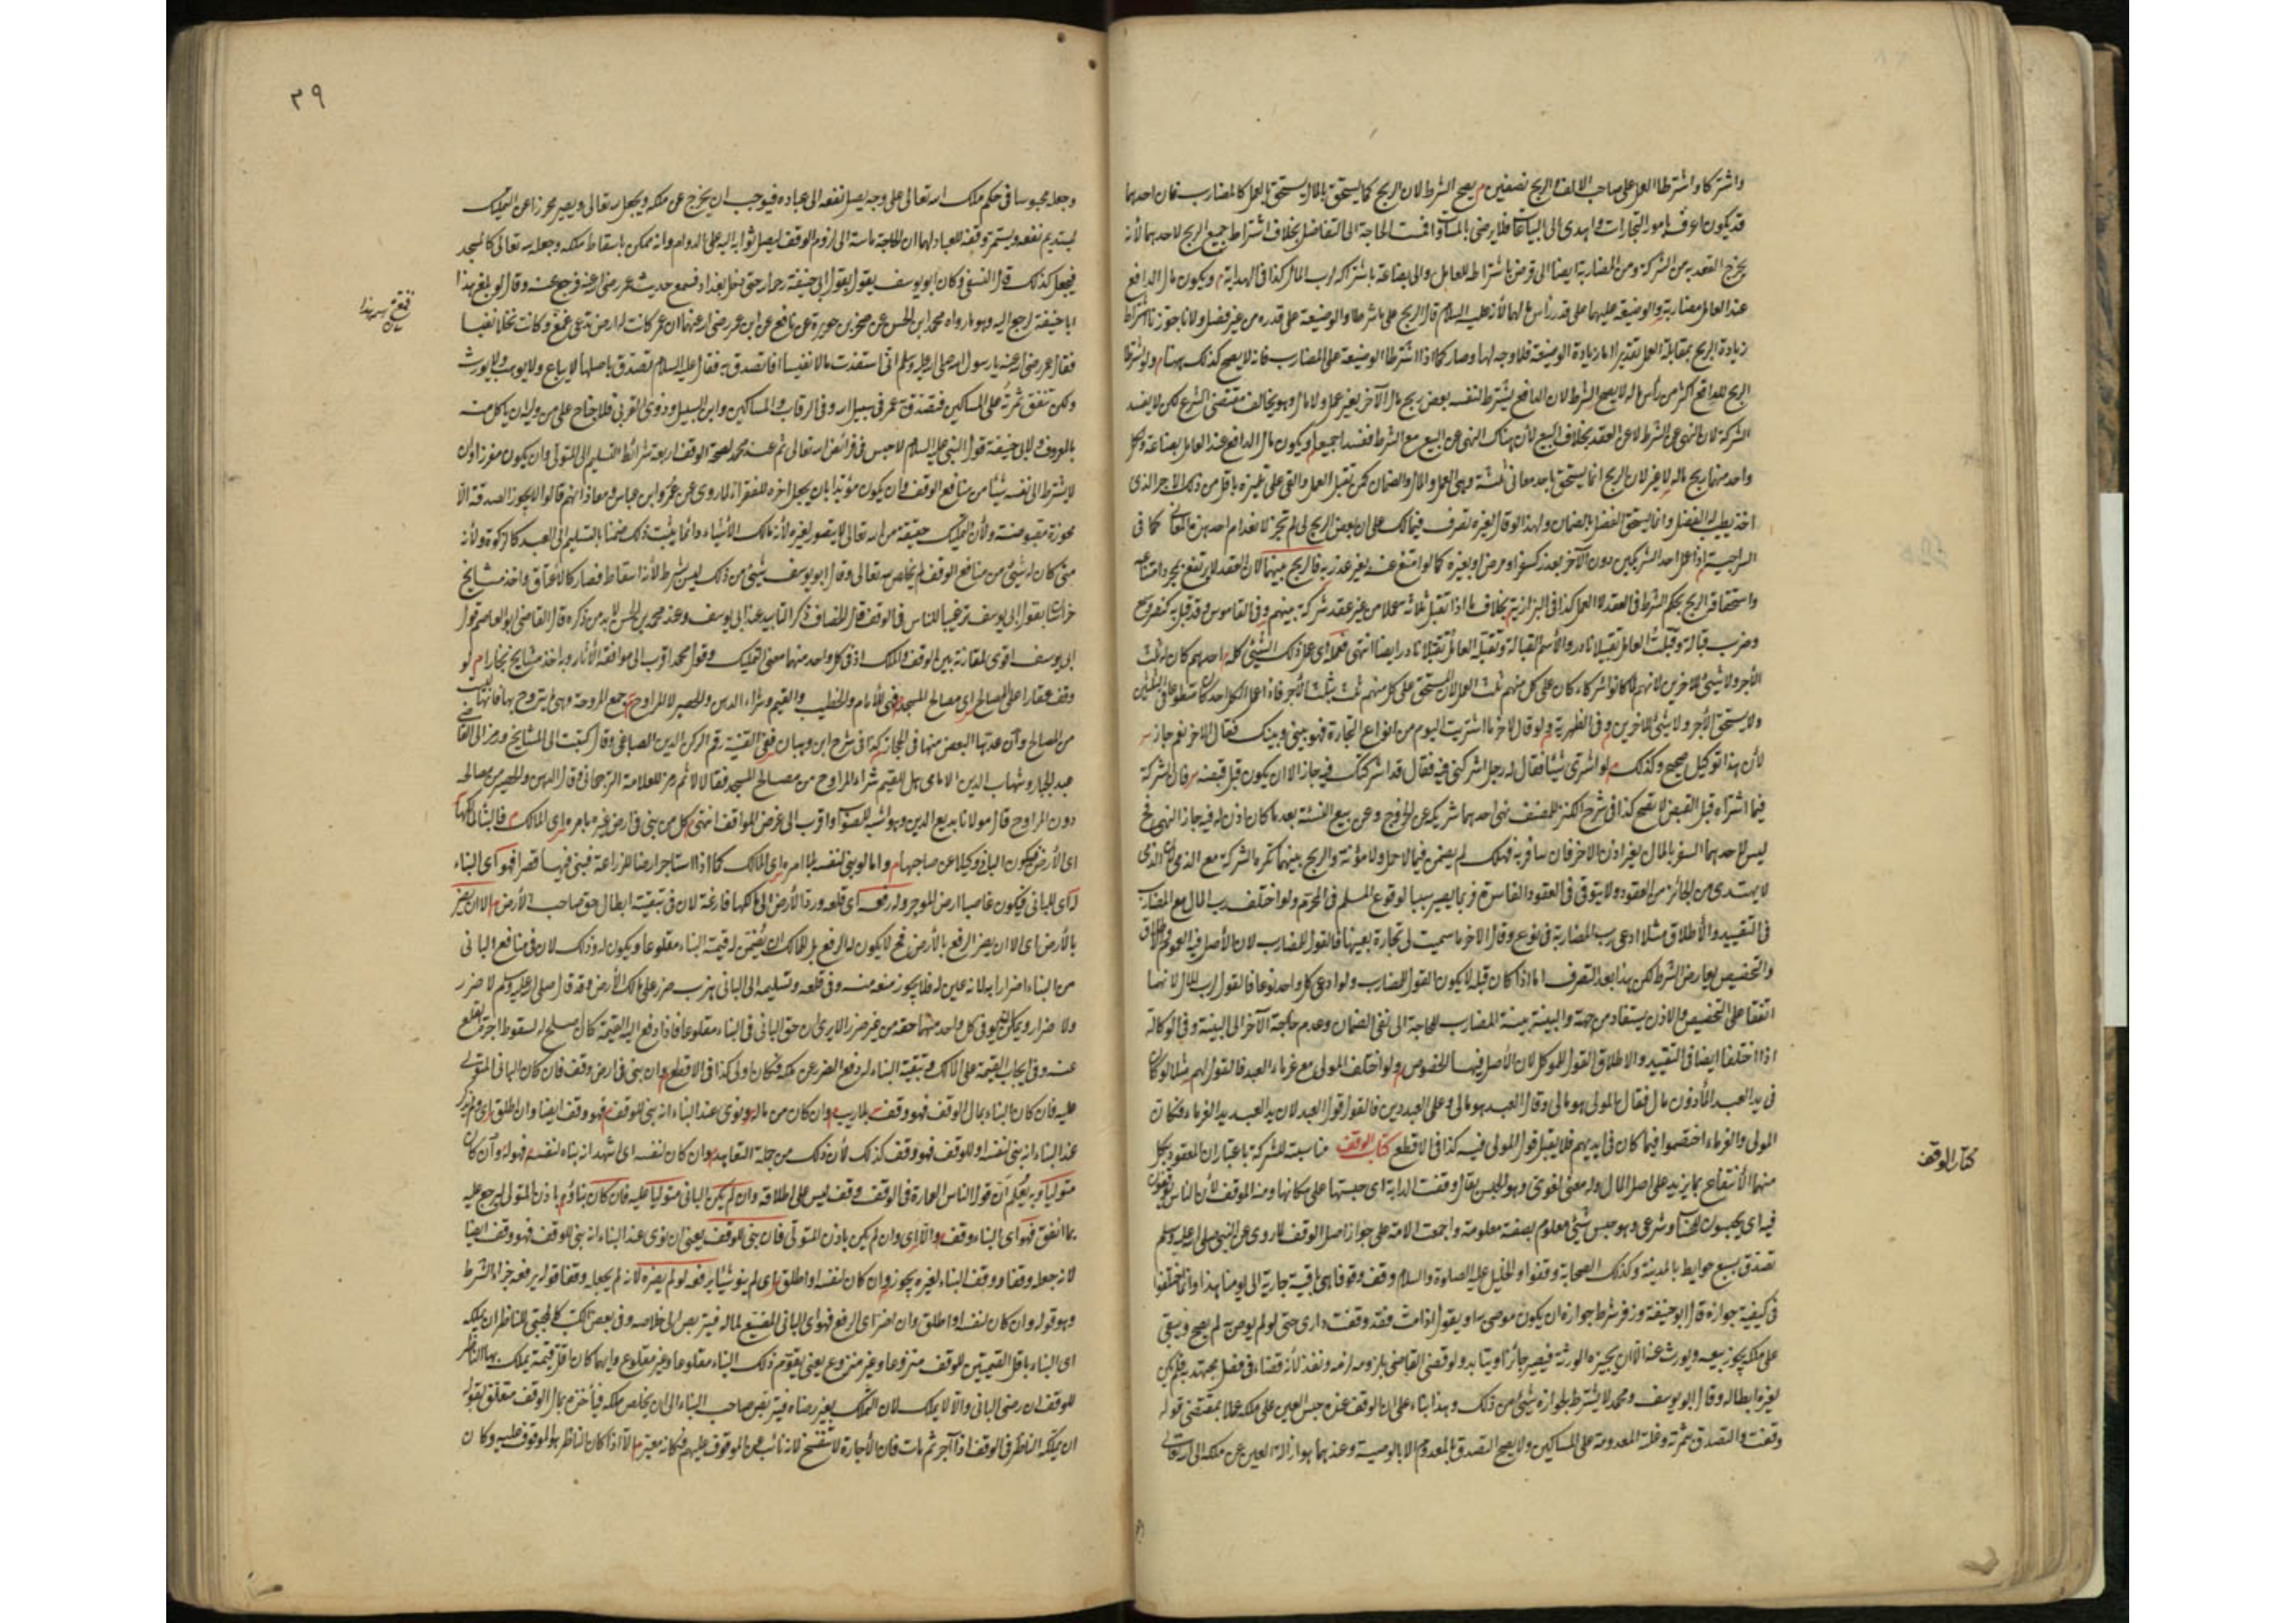 واشتركا واشترطا العمل على صاحب الالف والربح نصفين م يصح الشرط لان الربح كما يستحق بالمال يستحق بالعمل كالمضارب فان احدهما
قد يكون اعرف بامور التجارات واهدى الى البياعات فلا يرضى بالمساواة فمست الحاجة الى التفاضل بخلاف اشتراط جميع الربح لاحدهما لأنه
يخرج العقد به من الشركة ومن المضاربة ايضا الى قرض باشتراطه للعامل والى بضاعة باشتراكه لرب المال كذا فى الهداية م ويكون مال الدافع
عند العامل مضاربة والوضيعة عليهما على قدر رأس مالهما لأنه عليه السلام قال الربح على ما شرطا والوضيعة على قدر من غير فصل ولانا جوزنا اشتراط
زيادة الربح بمقابلة العمل تقديرا اما زيادة الوضيعة فلا وجه لها وصار كما اذا اشترطا الوضيعة على المضارب فانه لا يصح كذلك ههنا م ولو شرطا
الربح للدافع اكثر من رأس ماله لا يصح الشرط لان الدافع يشترط لنفسه بعض ربح مال الآخر بغير عمل ولا مال وهو يخالف مقتضى الشرع لكن لا يفسد
الشركة لان النهى عن الشرط لا عن العقد بخلاف البيع لأن هناك النهى عن البيع مع الشرط ففسدا جميعا ويكون مال الدافع عند العامل بضاعة ولكل
واحد منهما ربح ماله لا غير لان الربح انما يستحق باحد معانى ثلثة وهى العمل والمال والضمان كمن تقبل العمل والقى على تلميذه باقل من ذلك الاجر الذى
اخذ يطيب له الفضل وانما يستحق الفضل بالضمان ولهذا لو قال لغيره تصرف فى مالك على ان بعض الربح لى لم تجز لانعدام احد هذه المعانى كما فى
السراجية م اذا عمل احد الشريكين دون الآخر بعذر كسفر او مرض او بغيره كما لو امتنع عنه بغير عذر به فالربح بينهما لان العقد لا يرتفع بمجرد امتناعه
واستحقاق الربح بحكم الشرط فى العقد لا العمل كذا فى البزازية بخلاف ما اذا تقبل ثلاثة عملا من غير عقد شركة بينهم وفى القاموس وقد قبل به كنصر وسمع
وضرب قبالة وقبلت العامل تقبيلا نادر والأسم القبالة وتقبله العامل تقبلا نادر ايضا انتهى فعمله اى عمل ذلك الشئ كله احدهم كان له ثلث
الأجر ولا شئ للآخرين لانهم لما كانوا شركاء كان على كل منهم ثلث العمل لان المستحق على كل منهم ثلث بثلث الأجر فاذا عمل الكل احد كان متطوعا فى الثلثين
ولا يستحق الأجر ولا شئ للاخرين وفى الظهرية ولو قال لآخر ما اشتريت اليوم من انواع التجارة فهو بينى وبينك فقال الاخر نعم جاز
لأن هذا توكيل صحيح وكذلك م لو اشترى شيئا فقال له رجل اشركنى فيه فقال قد اشركتك فيه جاز الا ان يكون قبل قبضه فان الشركة
فيما اشتراه قبل القبض لا تصح كذا فى شرح الكنز للمصنف نهى احدهما شريكه عن الخروج وعن بيع النسئة بعد ما كان اذن له فيه جاز النهى فح
ليس لاحدهما السفر بالمال بغير اذن الاخر فان سافر به فهلك لم يضمن فيما لا حمل ولا مؤنة والربح بينهما تكره الشركة مع الذمى لان الذمى
لا يهتدى من الجائز من العقود ولا يتوقى فى العقود الفاسدة فربما يصير سببا لوقوع المسلم فى المحرم ولو اختلف رب المال مع المضارب
فى التقييد والأطلاق مثلا ادعى رب المضاربة فى نوع وقال الاخر ما سميت لى تجارة بعينها فالقول للمضارب لان الأصل فيه العموم والاطلاق
والتخصيص بعارض الشرط لكن هذا بعد التصرف اما اذا كان قبله لا يكون القول للمضارب ولو ادعى كل واحد نوعا فالقول لرب المال لانهما
اتفقا على التخصيص والاذن يستفاد من جهته والبينة بينة المضارب للحاجة الى نفى الضمان وعدم حاجة الآخر الى البينة وفى الوكالة
اذا اختلفا ايضا فى التقييد والاطلاق القول للموكل لان الأصل فيها الخصوص ولو اختلف المولى مع غرماء العبد فالقول لهم مثلا لو كان
فى يد العبد المأذون مال فقال المولى هو مالى وقال العبد هو مالى وعلى العبد دين فالقول قول العبد لان يد العبد يد الغرماء فكان
المولى والغرماء اختصموا فيما كان فى ايديهم فلا يقبل قول المولى فيه كذا فى الاقطع كتاب الوقف مناسبته للشركة باعتبار ان المقصود بكل
منهما الأنتفاع بما يزيد على اصل المال وله معنى لغوى وهو الحبس يقال وقفت الدابة اى حبستها على مكانها ومنه الموقف لأن الناس يوقفون
فيه اى يحبسون للحساب وشرعى وهو حبس شئ معلوم بصفة معلومة واجمعت الامة على جواز اصل الوقف لما روى عن النبى صلى الله عليه وسلم
تصدق بسبع حوايط بالمدينة وكذلك الصحابة وقفوا والخليل عليه الصلوة والسلام وقف وقوفا هى باقية جارية الى يومنا هذا وانما اختلفوا
فى كيفية جوازه قال ابو حنيفة وزفر شرط جوازه ان يكون موصى به او يقول اذا مت فقد وقفت دارى حتى لو لم يوص به لم يصح ويبقى
على ملكه يجوز بيعه ويورث عنه الا ان يجيزه الورثة فيصير جائزا ويتأبد ولو قضى القاضى بلزومه لزمه ونفذ لأنه قضاء فى فصل مجتهد فيه فلم يكن
لغيره ابطاله وقال ابو يوسف ومحمد لا يشترط لجوازه شئ من ذلك وهذا بناء على ان الوقف عنده حبس العين على ملكه عملا بمقتضى قوله
وقفت والتصدق بثمرته وغلته المعدومة على المساكين ولا يصح التصدق بالمعدوم الا بالوصية وعندهما هو ازالة العين عن ملكه الى الله تعالى
كتاب الوقف
٣٩
وجعله محبوسا فى حكم ملك الله تعالى على وجه يصل نفعه الى عباده فيوجب ان يخرج عن ملكه ويجعل لله تعالى ويصير محرزا عن التمليك
ليستديم نفعه ويستمر وقفه للعباد لهما ان الحاجة ماسة الى لزوم الوقف ليصل ثوابه اليه على الدوام وانه ممكن باسقاط ملكه وجعله لله تعالى كالمسجد
فيجعل كذلك قال النسفى وكان ابو يوسف يقول بقول ابى حنيفة رحمه الله حتى دخل بغداد فسمع حديث عمر رضى الله عنه فرجع عنه وقال لو بلغ هذا
ابا حنيفة لرجع اليه وهو ما رواه محمد ابن الحسن عن صخر بن جويرة عن نافع عن ابن عمر رضى الله عنهما ان عمر كانت له ارض تدعى ثمغ وكانت نخلا نفيسا
فقال عمر رضى الله عنه يا رسول الله صلى الله عليه وسلم انى استفدت مالا نفيسا افاتصدق به فقال عليه السلام تصدق باصلها لا يباع ولا يوهب ولا يورث
ولكن تنفق ثمرته على المساكين فتصدق به عمر فى سبيل الله وفى الرقاب والمساكين وابن السبيل وذوى القربى فلا جناح على من وليه ان ياكل منه
بالمعروف ولابى حنيفة قول النبى عليه السلام لا حبس فى فرائض الله تعالى ثم عند محمد لصحة الوقف اربعة شرائط التسليم الى المتولى وان يكون مفرزا وان
لا يشترط الى نفسه شيئا من منافع الوقف وان يكون مؤبدا بان يجعل اخره للفقراء لما روى عن عمر وابن عباس ومعاذ انهم قالوا لا يجوز الصدقة الا
محوزة مقبوضة ولأن التمليك حقيقة من الله تعالى لا يتصور لغيره لأنه مالك الأشياء وانما يثبت ذلك ضمنا بالتسليم الى العبد كالزكوة ولأنه
متى كان له شئ من منافع الوقف لم يخلص لله تعالى وقال ابو يوسف شئ من ذلك ليس بشرط لأنه اسقاط فصار كالأعتاق واخذ مشايخ
خراسان بقول ابى يوسف ترغيبا للناس فى الوقف قال الخصاف ذكر التابيد عند ابى يوسف وعند محمد بن الحسن لا بد من ذكره قال القاضى ابو العاصم قول
ابى يوسف اقوى لمقارنة بين الوقف والملك اذ فى كل واحد منهما معنى التمليك وقول محمد اقرب الى موافقة الأثار وبه اخذ مشايخ بخارا م لو
وقف عقارا على المصالح اى مصالح المسجد فهى للأمام والخطيب والقيم وشراء الدهن والحصير لا للمراوح جمع المروحة وهى ما يتروح بها فانها ليست
من المصالح وأن عدها البعض منها فى الجملة كذا فى شرح ابن وهبان ففى القنية رقم الركن الدين الصباغى وقال كتبت الى المشايخ ورمز الى القاضى
عبد الجبار وشهاب الدين الامامى هل للقيم شراء المراوح من مصالح المسجد فقالا لا ثم رمز للعلامة الترجمانى وقال الدهن والحصير من مصالحه
دون المراوح قال مولانا بديع الدين وهو اشبه للصواب واقرب الى غرض الواقف انتهى كل من بنى فى ارض غيره بامره اى المالك م فالبناء لمالكها
اى الأرض فيكون البانى وكيلا عن صاحبها م واما لو بنى لنفسه بلا امره اى المالك كما اذا استاجر ارضا للزراعة فبنى فيها قصرا فهو اى البناء
له اى للبانى فيكون غاصبا ارض الموجر وله رفعه اى قلعه ورد الأرض الى مالكها فارغة لان فى تبقيته ابطال حق صاحب الأرض م الا ان يضر
بالأرض اى الا ان يضر الرفع بالأرض فح لا يكون له الرفع بل للمالك ان يضمن له قيمة البناء مقلوعا ويكون له وذلك لان فى منافع البانى
من البناء اضرارا به لانه عين له فلا يجوز منعه منه وفى قلعه وتسليمه الى البانى ضرب ضرر على مالك الأرض وقد قال صلى الله عليه وسلم لا ضرر
ولا ضرار ويمكن ان يوفى كل واحد منهما حقه من غير ضرر الا يرى ان حق البانى فى البناء مقلوعا فاذا دفع اليه القيمة كان مصلح له لسقوط اجرة القلع
عنه وفى ايجاب القيمة على المالك وتبقية البناء له دفع الضرر عن ملكه فكان اولى كذا فى الاقطع وان بنى فى ارض وقف فان كان البانى المتولى
عليه فان كان البناء بمال الوقف فهو وقف بلا ريب وان كان من ماله ونوى عند البناء انه بنى للوقف فهو وقف ايضا وان اطلق اى ولم يذكر
عند البناء انه بنى لنفسه او للوقف فهو وقف كذلك لأن ذلك من جملة التعاهد وان كان لنفسه اى اشهد انه بناه لنفسه فهو له وأن كان
متوليا وبه يعلم ان قول الناس العمارة فى الوقف وقف ليس على اطلاقه وان لم يكن البانى متوليا عليه فان كان بناؤه باذن المتولى ليرجع عليه
بما انفق فهو اى البناء وقف والا اى وان لم يكن باذن المتولى فان بنى للوقف يعنى ان نوى عند البناء انه بنى للوقف فهو وقف ايضا
لانه جعله وقفا ووقف البناء لغيره يجوز وان كان لنفسه او اطلق اى لم ينو شيئا يرفعه لو لم يضره لانه لم يجعله وقفا قوله يرفعه جزاء الشرط
وهو قوله وان كان لنفسه او اطلق وان اضر اى الرفع فهو اى البانى المضيع لماله فيتربص الى خلاصه وفى بعض الكتب الحنفى للناظر ان يملكه
اى البناء باقل القيمتين للوقف منزوعا وغير منزوع يعنى يقوم ذلك البناء مقلوعا وغير مقلوع وايهما كان اقل قيمة يملك بها الناظر
للوقف ان رضى البانى والا لا يملك لان التملك بغير رضاه فيتربص صاحب البناء الى ان يخلص ملكه فيأخذه بمال الوقف متعلق بقوله
ان يملكه الناظر فى الوقف اذا آجر ثم مات فان الأجارة لا تنفسخ لانه نائب عن الموقوف عليهم فكانه معير م الا اذا كان الناظر هو الموقوف عليه وكان